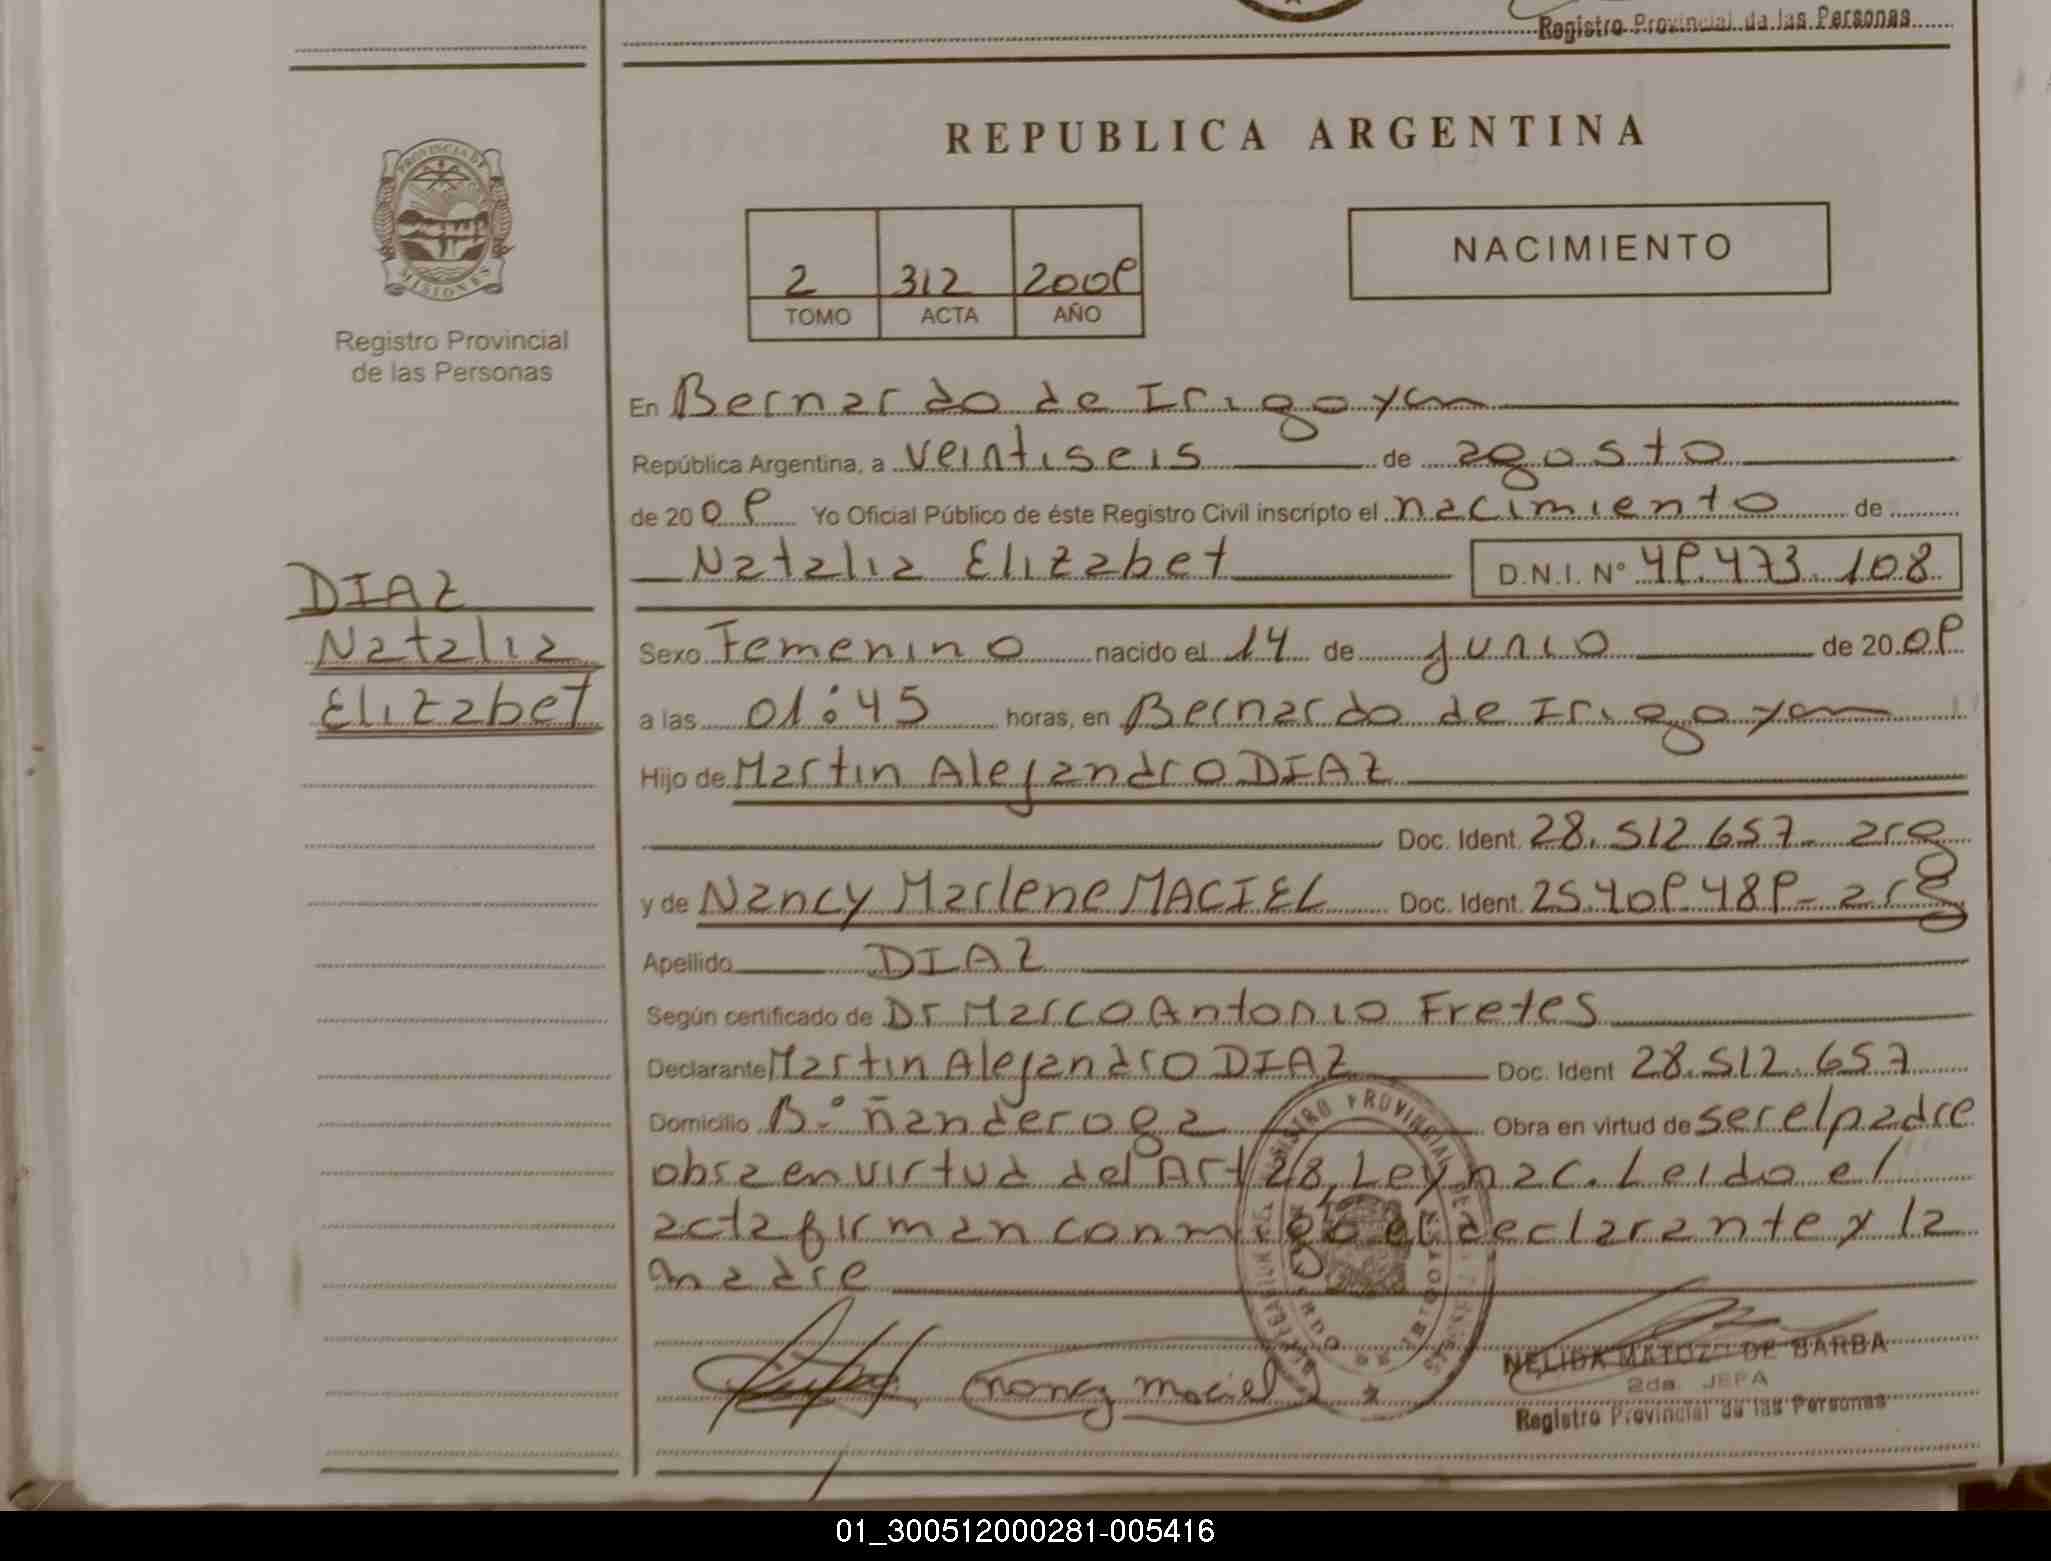 Registro Provincial de las Personas
REPUBLICA ARGENTINA
PROVINCIA DE
MISIONES
Registro Provincial
de las Personas
2 312 2009
TOMO ACTA AÑO
NACIMIENTO
En Bernardo de Irigoyen
República Argentina, a veintiseis de agosto
de 2009 Yo Oficial Público de éste Registro Civil inscripto el nacimiento de
Natalia Elizabet D.N.I. N° 49.473.108
DIAZ
Natalia
Elizabet
Sexo Femenino nacido el 14 de junio de 2009
a las 01:45 horas, en Bernardo de Irigoyen
Hijo de Martin Alejandro DIAZ
Doc. Ident. 28.512.657- arg
y de Nancy Marlene MACIEL Doc. Ident. 25.409.489- arg
Apellido DIAZ
Según certificado de Dr Marco Antonio Fretes
Declarante Martin Alejandro DIAZ Doc. Ident 28.512.657
Domicilio B° Ñanderoga Obra en virtud de ser el padre
obra en virtud del Art 28, Ley nac. Leido el
acta firman conmigo el declarante y la
madre
nancy maciel
NELIDA MATOZO DE BARBA
2da. JEFA
Registro Provincial de las Personas
01_300512000281-005416